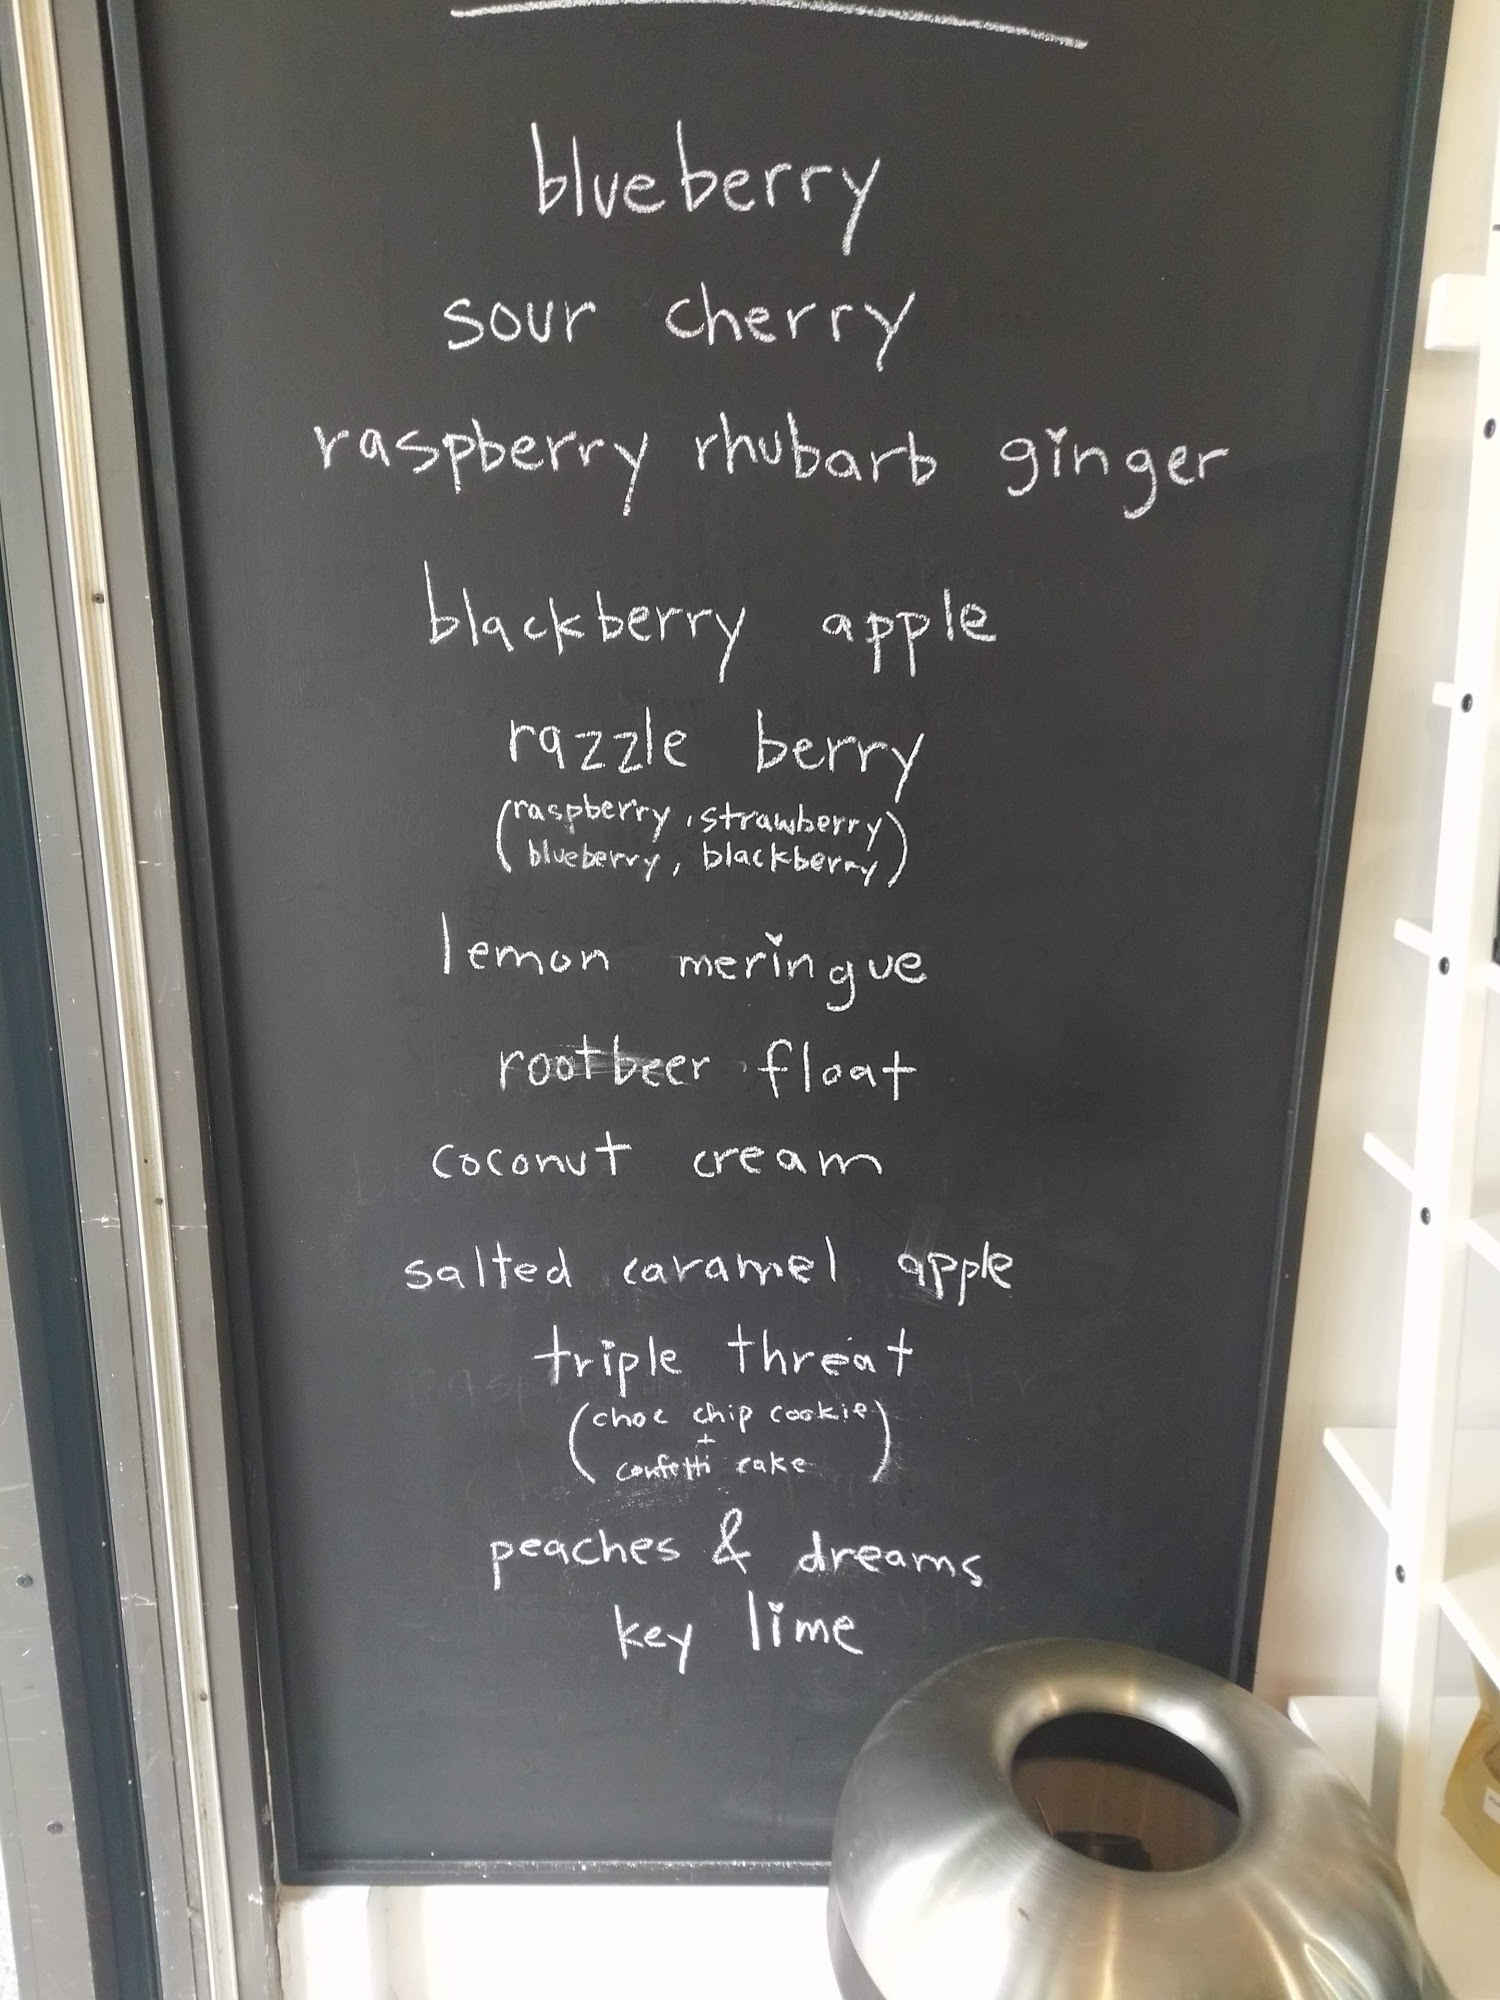 blueberry
sour cherry
raspberry rhubarb ginger
blackberry apple
razzle berry
(raspberry, strawberry
blueberry, blackberry)
lemon meringue
rootbeer float
coconut cream
salted caramel apple
triple threat
(choc chip cookie
+
confetti cake)
peaches & dreams
key lime